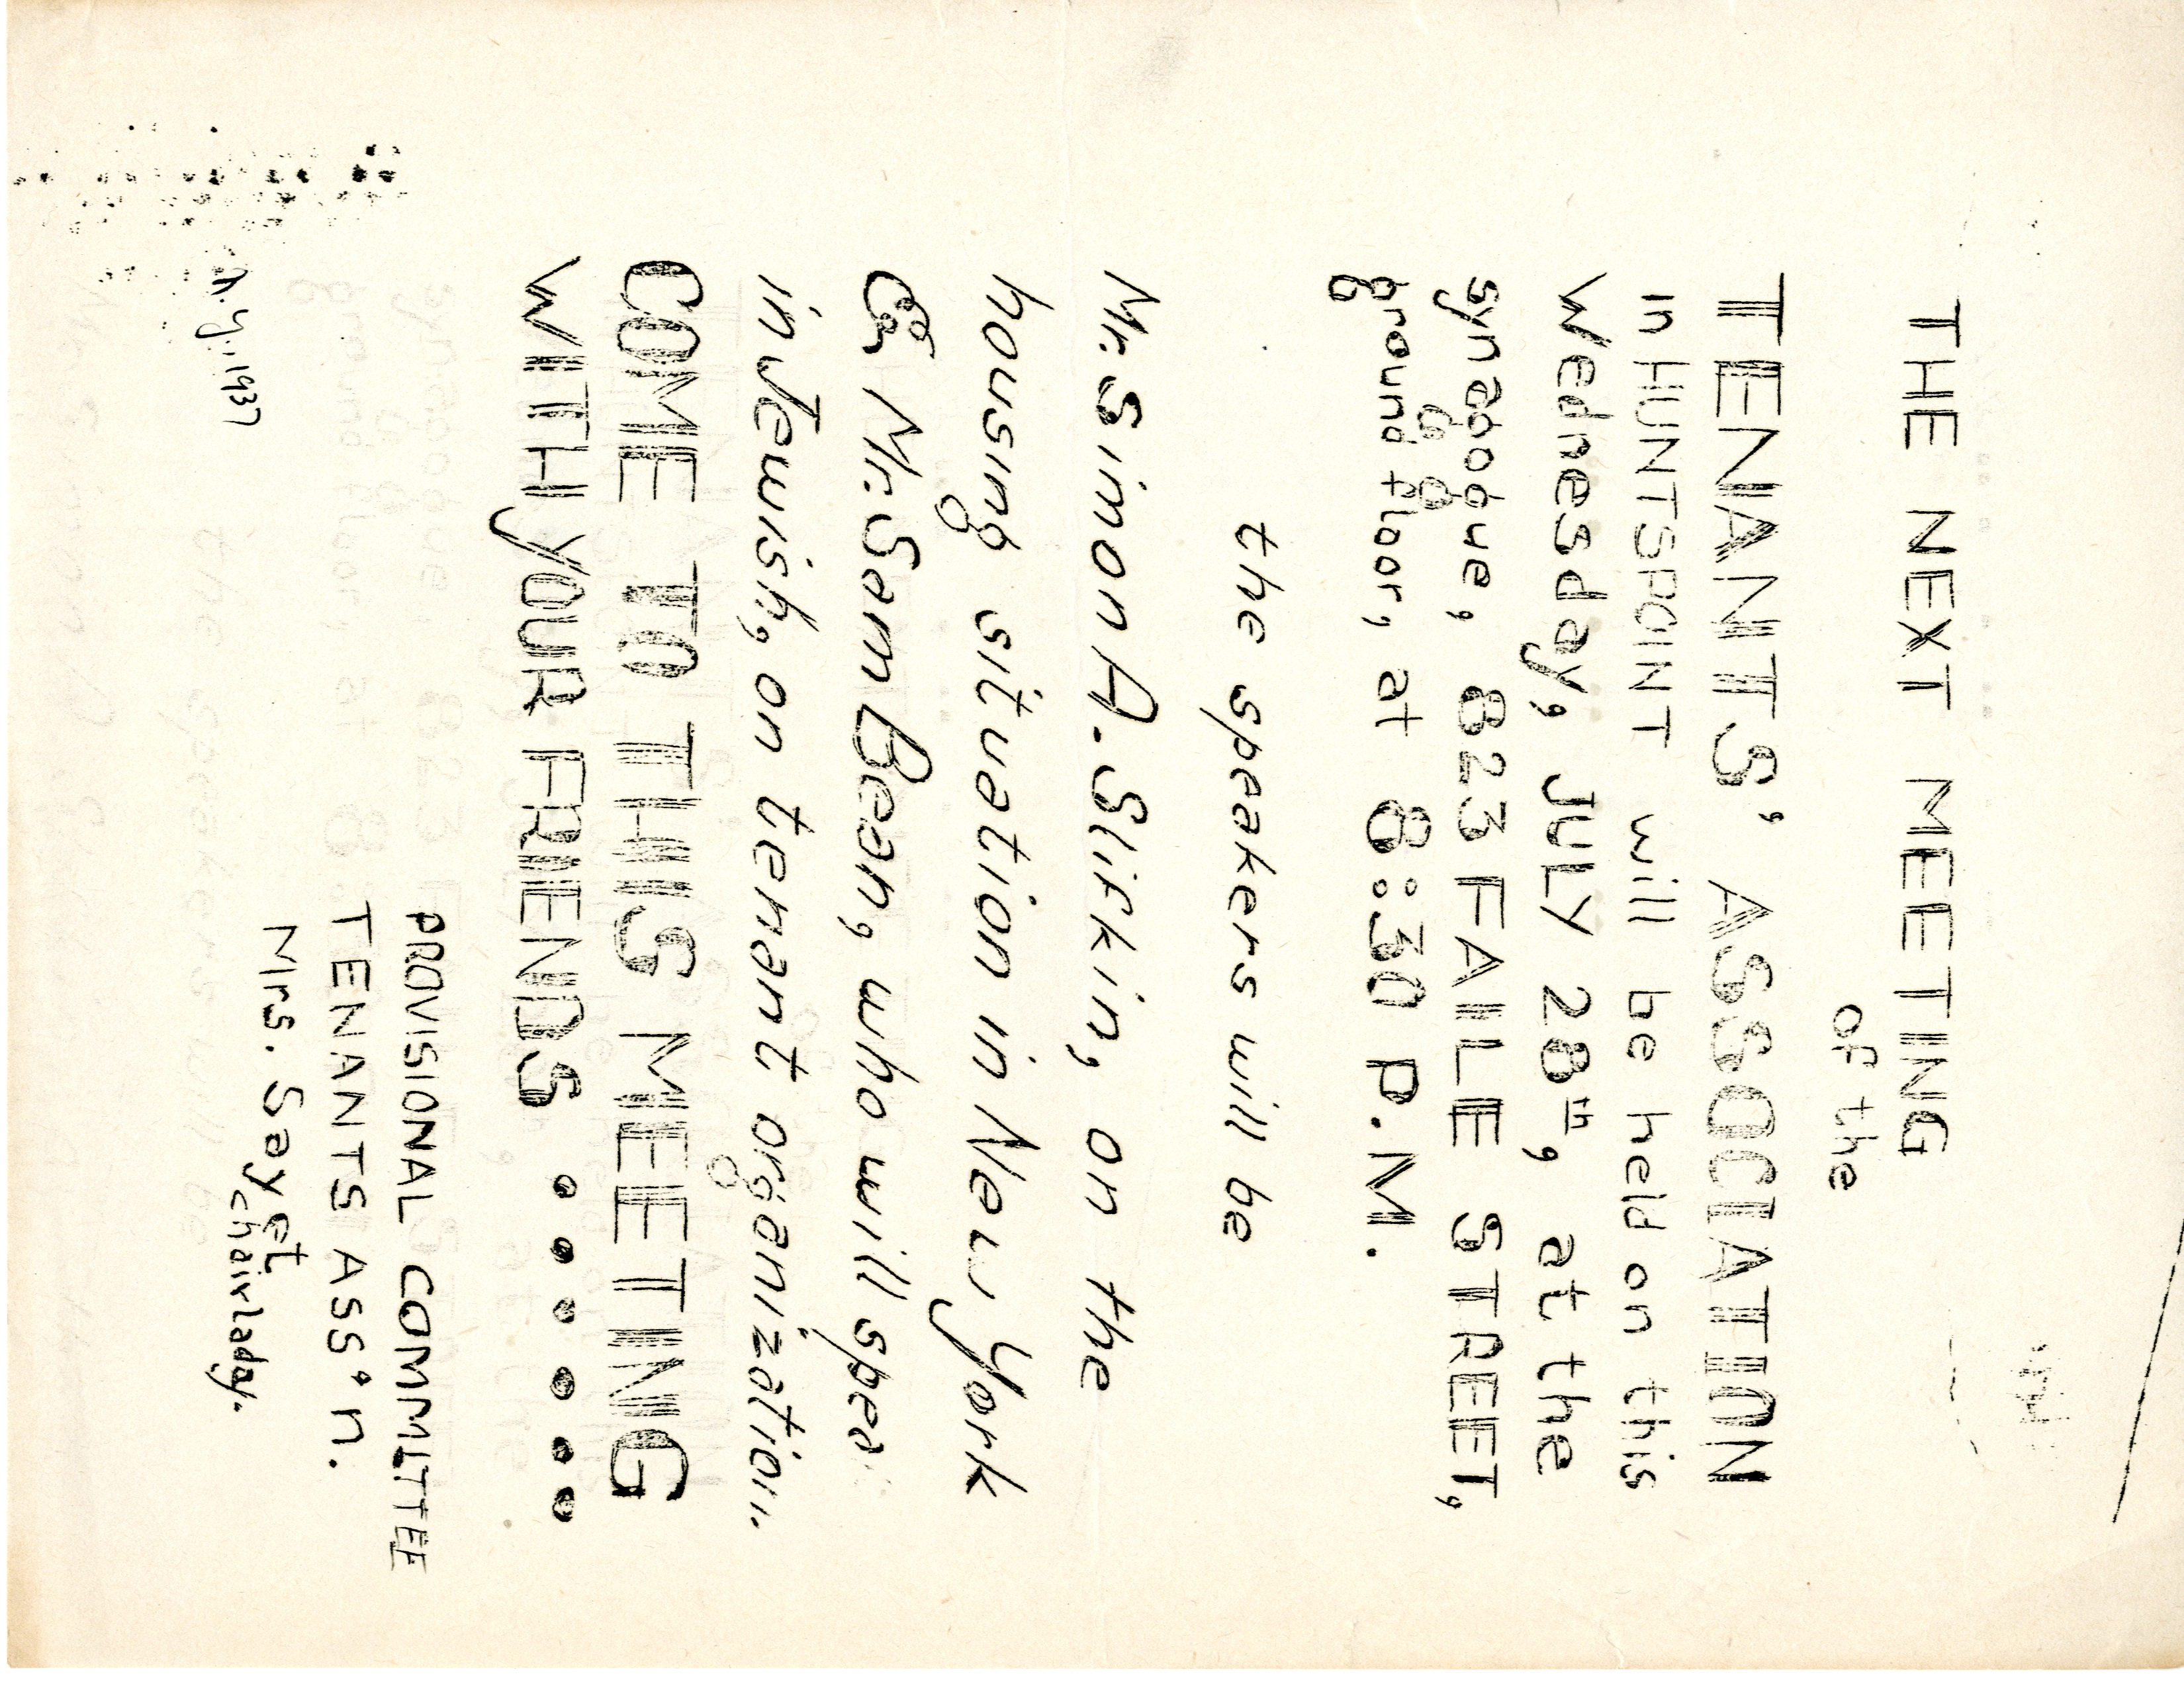 THE NEXT MEETING
of the
TENANTS' ASSOCIATION
in HUNTSPOINT will be held on this
Wednesday, JULY 28th, at the
synagogue, 823 FAILE STREET,
ground floor, at 8:30 P.M.
the speakers will be
Mr. Simon A. Slifkin, on the
housing situation in New York
& Mr. Sam Bean, who will spea
in Jewish, on tenant organization.
COME TO THIS MEETING
WITH YOUR FRIENDS ••••••
PROVISIONAL COMMITTEE
TENANTS ASS'n.
Mrs. Sayet
chairlady.
N.Y., 1937